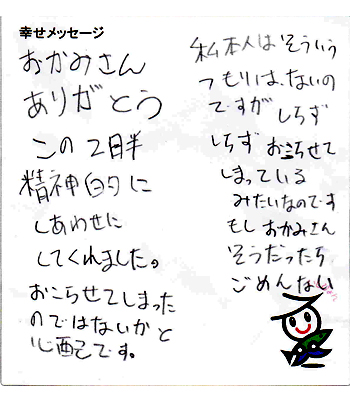 幸せメッセージ
おかみさん
ありがとう
この2日半
精神的に
しあわせに
してくれました。
おこらせてしまった
のではないかと
心配です。
私本人はそういう
つもりは、ないの
ですが しらず
しらず おこらせて
しまっている
みたいなのです
もし おかみさん
そうだったら
ごめんない